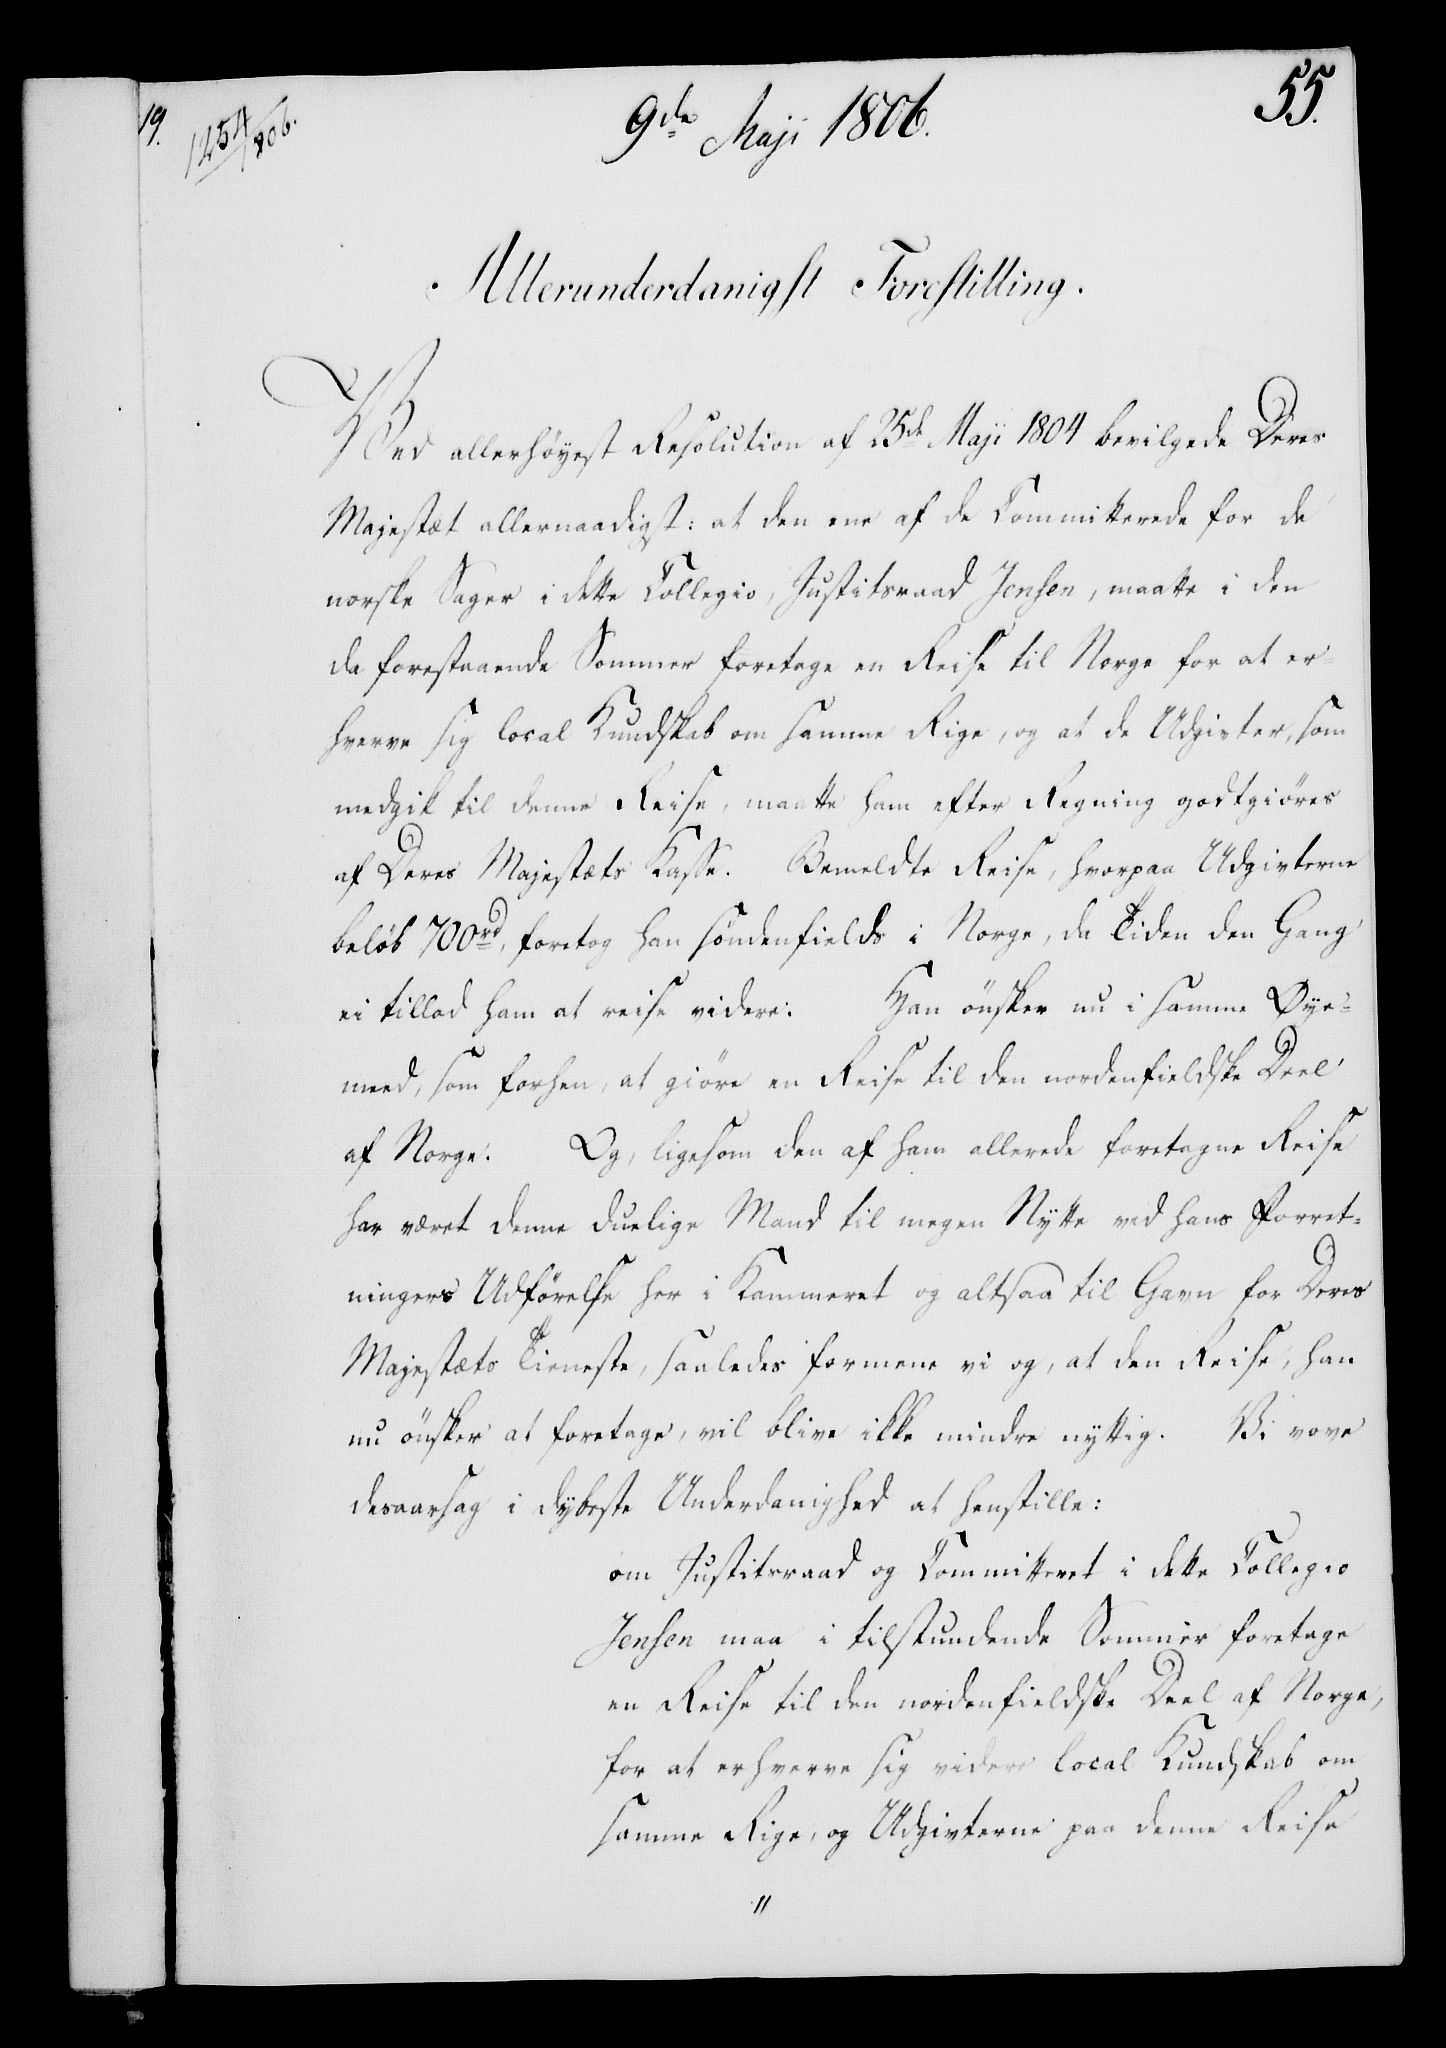 19.
1454/806.
9de Maji 1806.
55.
Allerunderdanigst Forestilling.
Ved allerhöyest Resolution af 25de Maji 1804 bevilgede Deres
Majestæt allernaadigst: at den ene af de Committerede for de
norske Sager i dette Collegio, Justitsraad Jensen, maatte i den
da forestaaende Sommer foretage en Reise til Norge for at er-
hverve sig local Kundskab om samme Rige, og at de Udgivter, som
medgik til denne Reise, maatte ham efter Regning godtgiöres
af Deres Majestæts Kasse. Bemeldte Reise, hvorpaa Udgivterne
belöb 700rd, foretog han söndenfields i Norge, da Tiden den Gang
ei tillod ham at reise videre. Han önsker nu i samme Øye-
meed, som forhen, at giöre en Reise til den nordenfieldske Deel
af Norge. Og, ligesom den af ham allerede foretagne Reise
har været denne duelige Mand til megen Nytte ved hans Forret-
ningers Udförelse her i Kammeret og altsaa til Gavn for Deres
Majestæts Tieneste, saaledes formene vi og, at den Reise, han
nu önsker at foretage, vil blive ikke mindre nyttig. Vi vove
desaarsag i dybeste Underdanighed at henstille:
om Justitsraad og Committeret i dette Collegio
Jensen maa i tilstundende Sommer foretage
en Reise til den nordenfieldske Deel af Norge,
for at erhverve sig videre local Kundskab om
samme Rige, og Udgivterne paa denne Reise
"